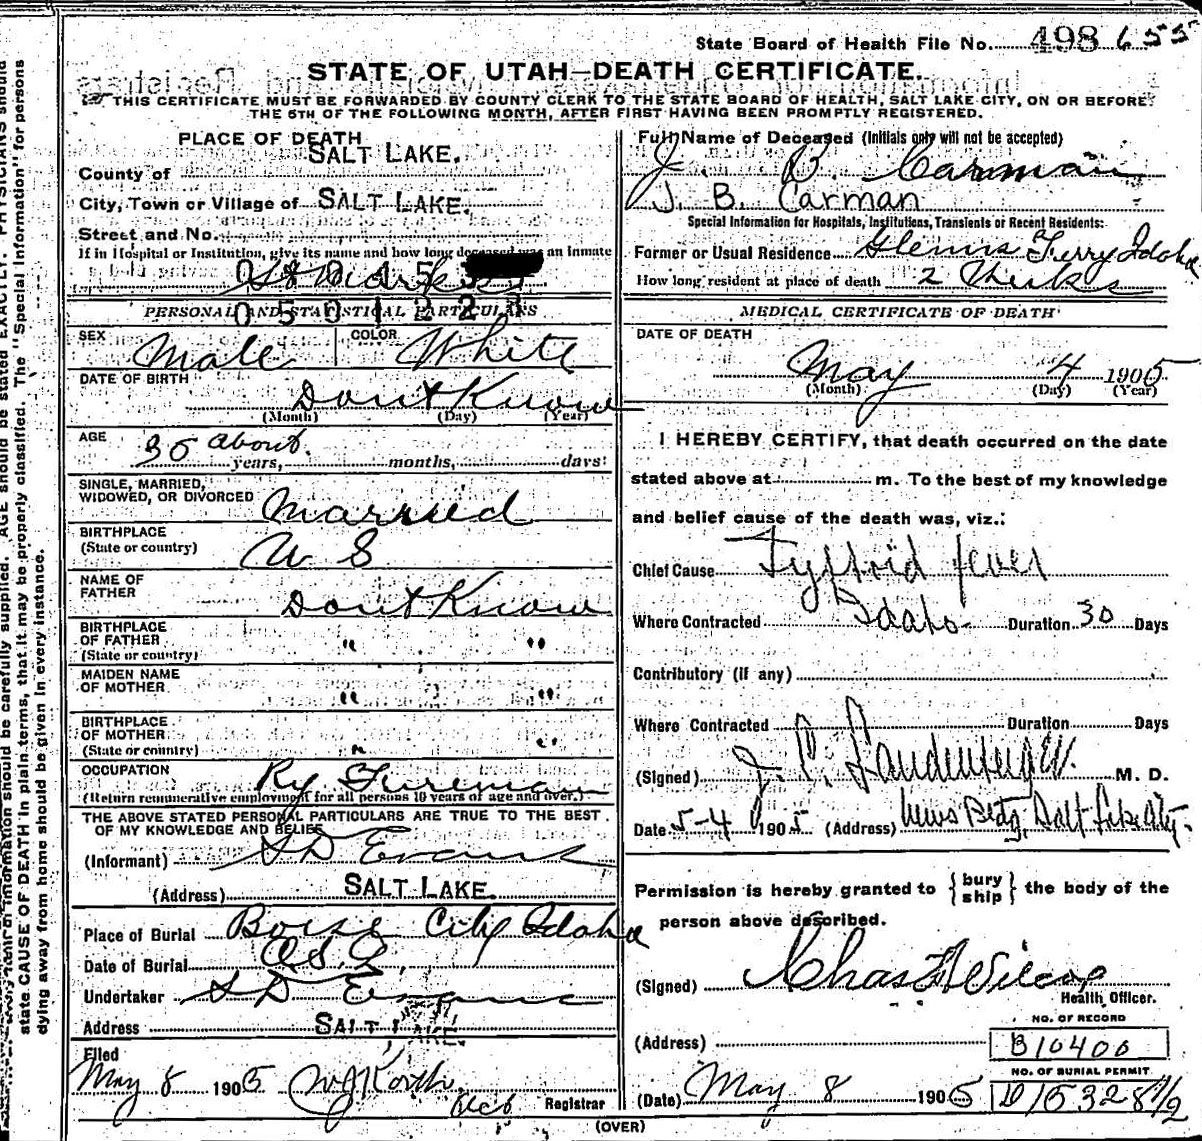 State Board of Health File No. 498 655
STATE OF UTAH—DEATH CERTIFICATE.
THIS CERTIFICATE MUST BE FORWARDED BY COUNTY CLERK TO THE STATE BOARD OF HEALTH, SALT LAKE CITY, ON OR BEFORE
THE 5TH OF THE FOLLOWING MONTH, AFTER FIRST HAVING BEEN PROMPTLY REGISTERED.
PLACE OF DEATH
County of SALT LAKE.
City, Town or Village of SALT LAKE.
Street and No.
If in Hospital or Institution, give its name and how long deceased was an inmate
St Marks
0501223
PERSONAL AND STATISTICAL PARTICULARS
SEX Male COLOR White
DATE OF BIRTH Dont Know
(Month) (Day) (Year)
AGE 35 about.
years, months, days
SINGLE, MARRIED,
WIDOWED, OR DIVORCED Married
BIRTHPLACE
(State or country) U S
NAME OF
FATHER Dont Know
BIRTHPLACE
OF FATHER " "
(State or country)
MAIDEN NAME
OF MOTHER " "
BIRTHPLACE
OF MOTHER
(State or country) " "
OCCUPATION Ry Fireman
(Return remunerative employment for all persons 10 years of age and over.)
THE ABOVE STATED PERSONAL PARTICULARS ARE TRUE TO THE BEST
OF MY KNOWLEDGE AND BELIEF
(Informant) S D Evans
(Address) SALT LAKE.
Place of Burial Boise City Idaho
Date of Burial
Undertaker S D Evans
Address SALT LAKE.
Filed
May 8 1905
Registrar
Full Name of Deceased (Initials only will not be accepted)
J. B. Carman
J. B. Carman
Special Information for Hospitals, Institutions, Transients or Recent Residents:
Former or Usual Residence Glenns Ferry Idaho
How long resident at place of death 2 Weeks
MEDICAL CERTIFICATE OF DEATH
DATE OF DEATH
May 4 1905
(Month) (Day) (Year)
I HEREBY CERTIFY, that death occurred on the date
stated above at m. To the best of my knowledge
and belief cause of the death was, viz.:
Chief Cause Typhoid fever
Where Contracted Idaho. Duration 30 Days
Contributory (if any)
Where Contracted Duration Days
(Signed) J. C. Landenberger. M. D.
Date 5-4 1905 (Address) News Bldg, Salt Lake City.
Permission is hereby granted to {bury ship} the body of the
person above described.
(Signed) Chas F Wilcox
Health Officer.
(Address)
NO. OF RECORD
B10400
NO. OF BURIAL PERMIT
(Date) May 8 1905 D15328 1/2
(OVER)
state CAUSE OF DEATH in plain terms, that it may be properly classified. The "Special Information" for persons
dying away from home should be given in every instance.